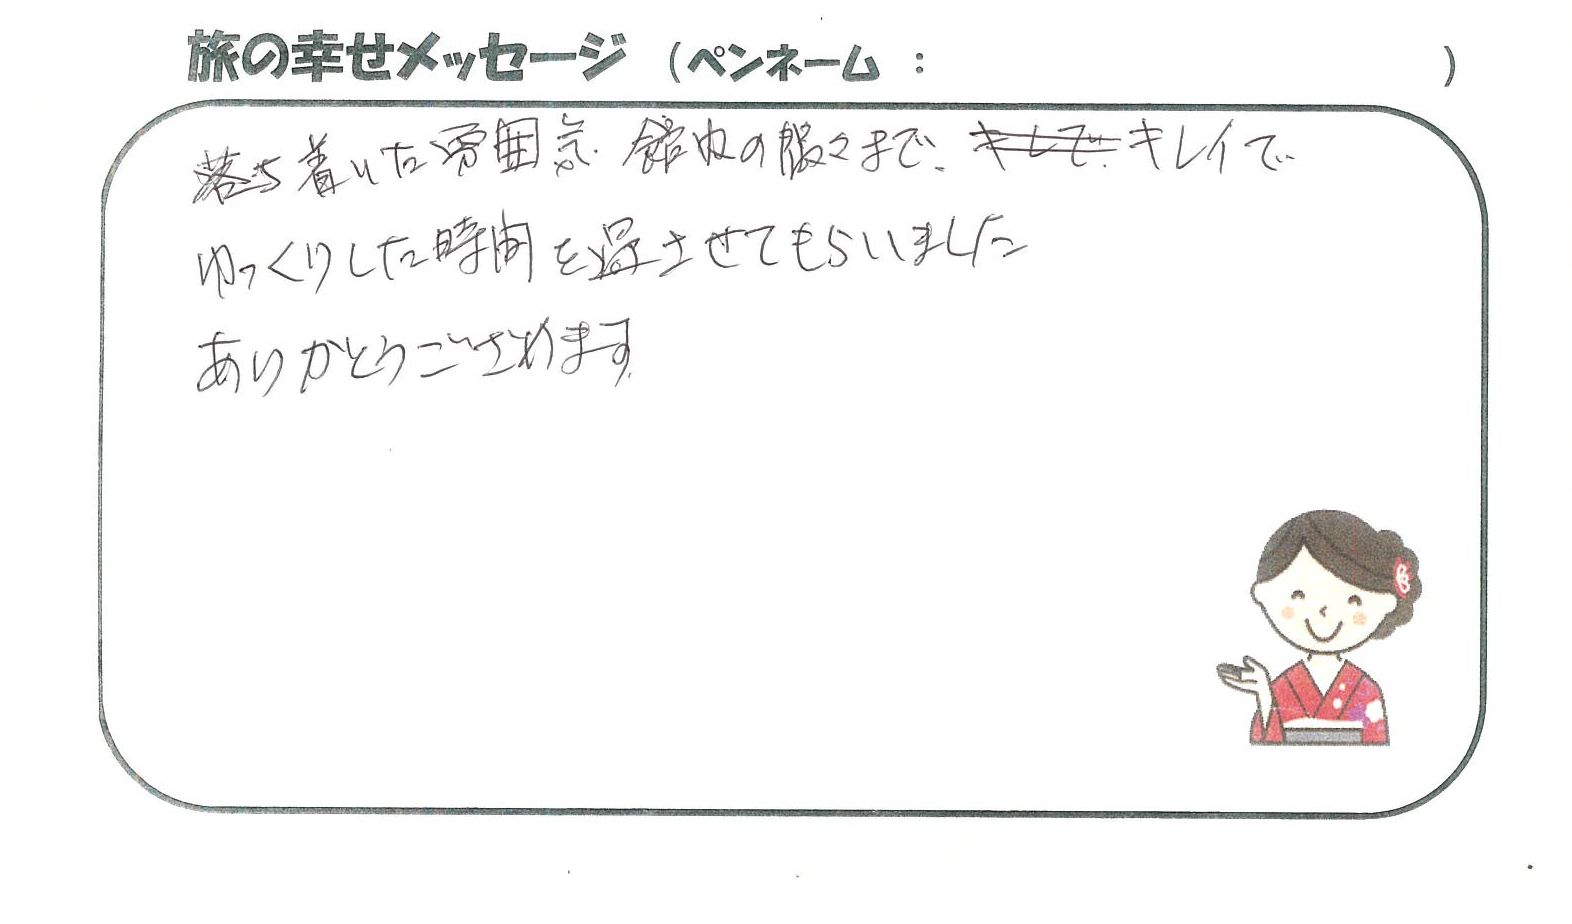 旅の幸せメッセージ (ペンネーム : )
落ち着いた雰囲気 館内の隅々まで、キレイで
ゆっくりした時間を過させてもらいました
ありがとうございます